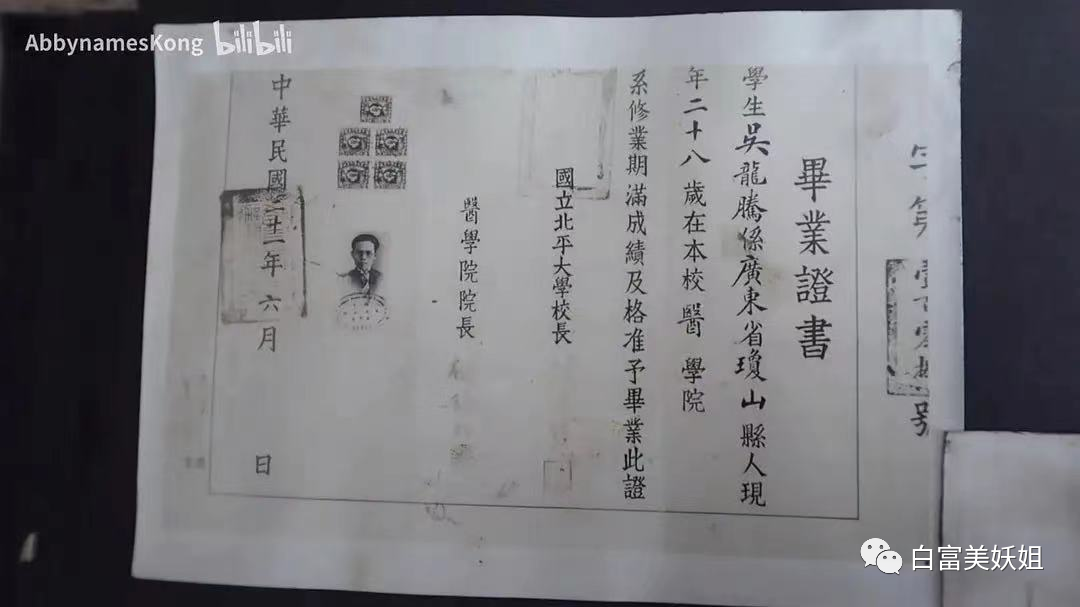 AbbynamesKong bilibili
畢業證書
學生吳龍騰係廣東省瓊山縣人現
年二十八歲在本校醫學院
系修業期滿成績及格准予畢業此證
國立北平大學校長
醫學院院長
中華民國二十二年六月 日
白富美妖姐